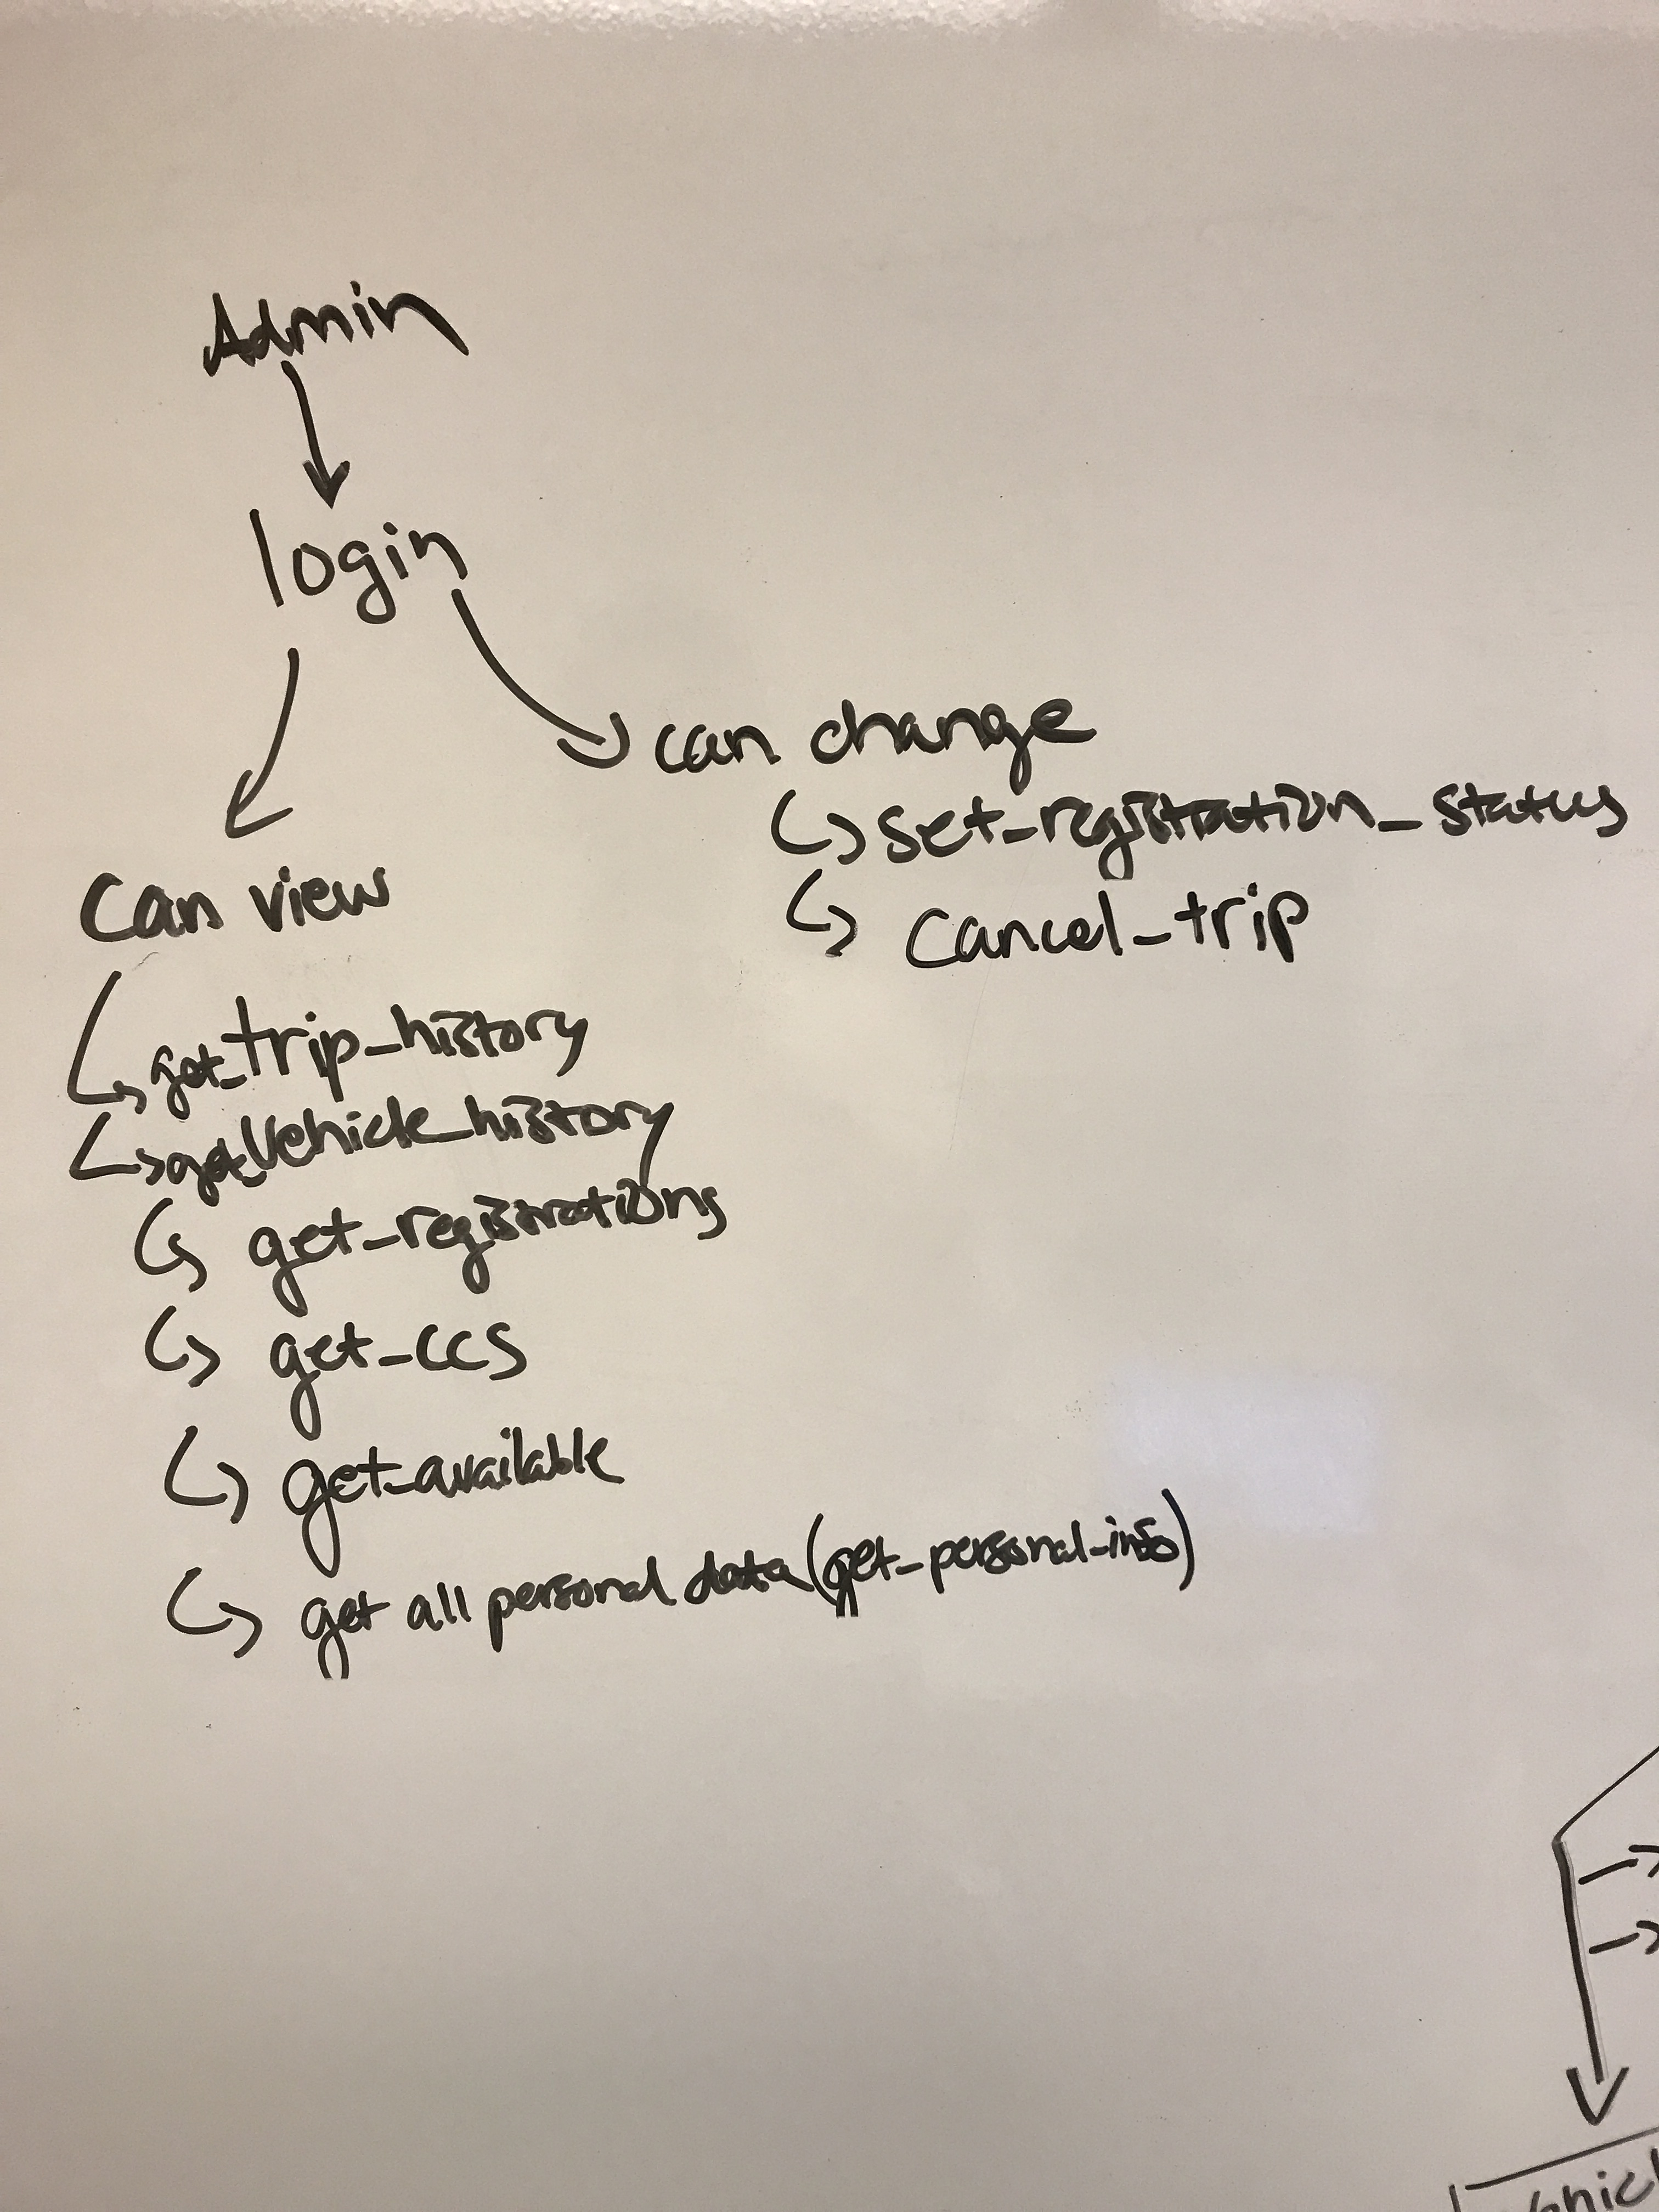 Admin
login
can change
set_registration_status
cancel_trip
Can view
get_trip_history
get_vehicle_history
get_registrations
get_ccs
get_available
get all personal data (get_personal_info)